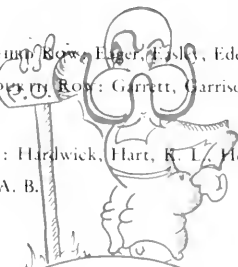 Row: Eager, Easley, Ede
Row: Garrett, Garriso
: Hardwick, Hart, K. L., He
A. B.